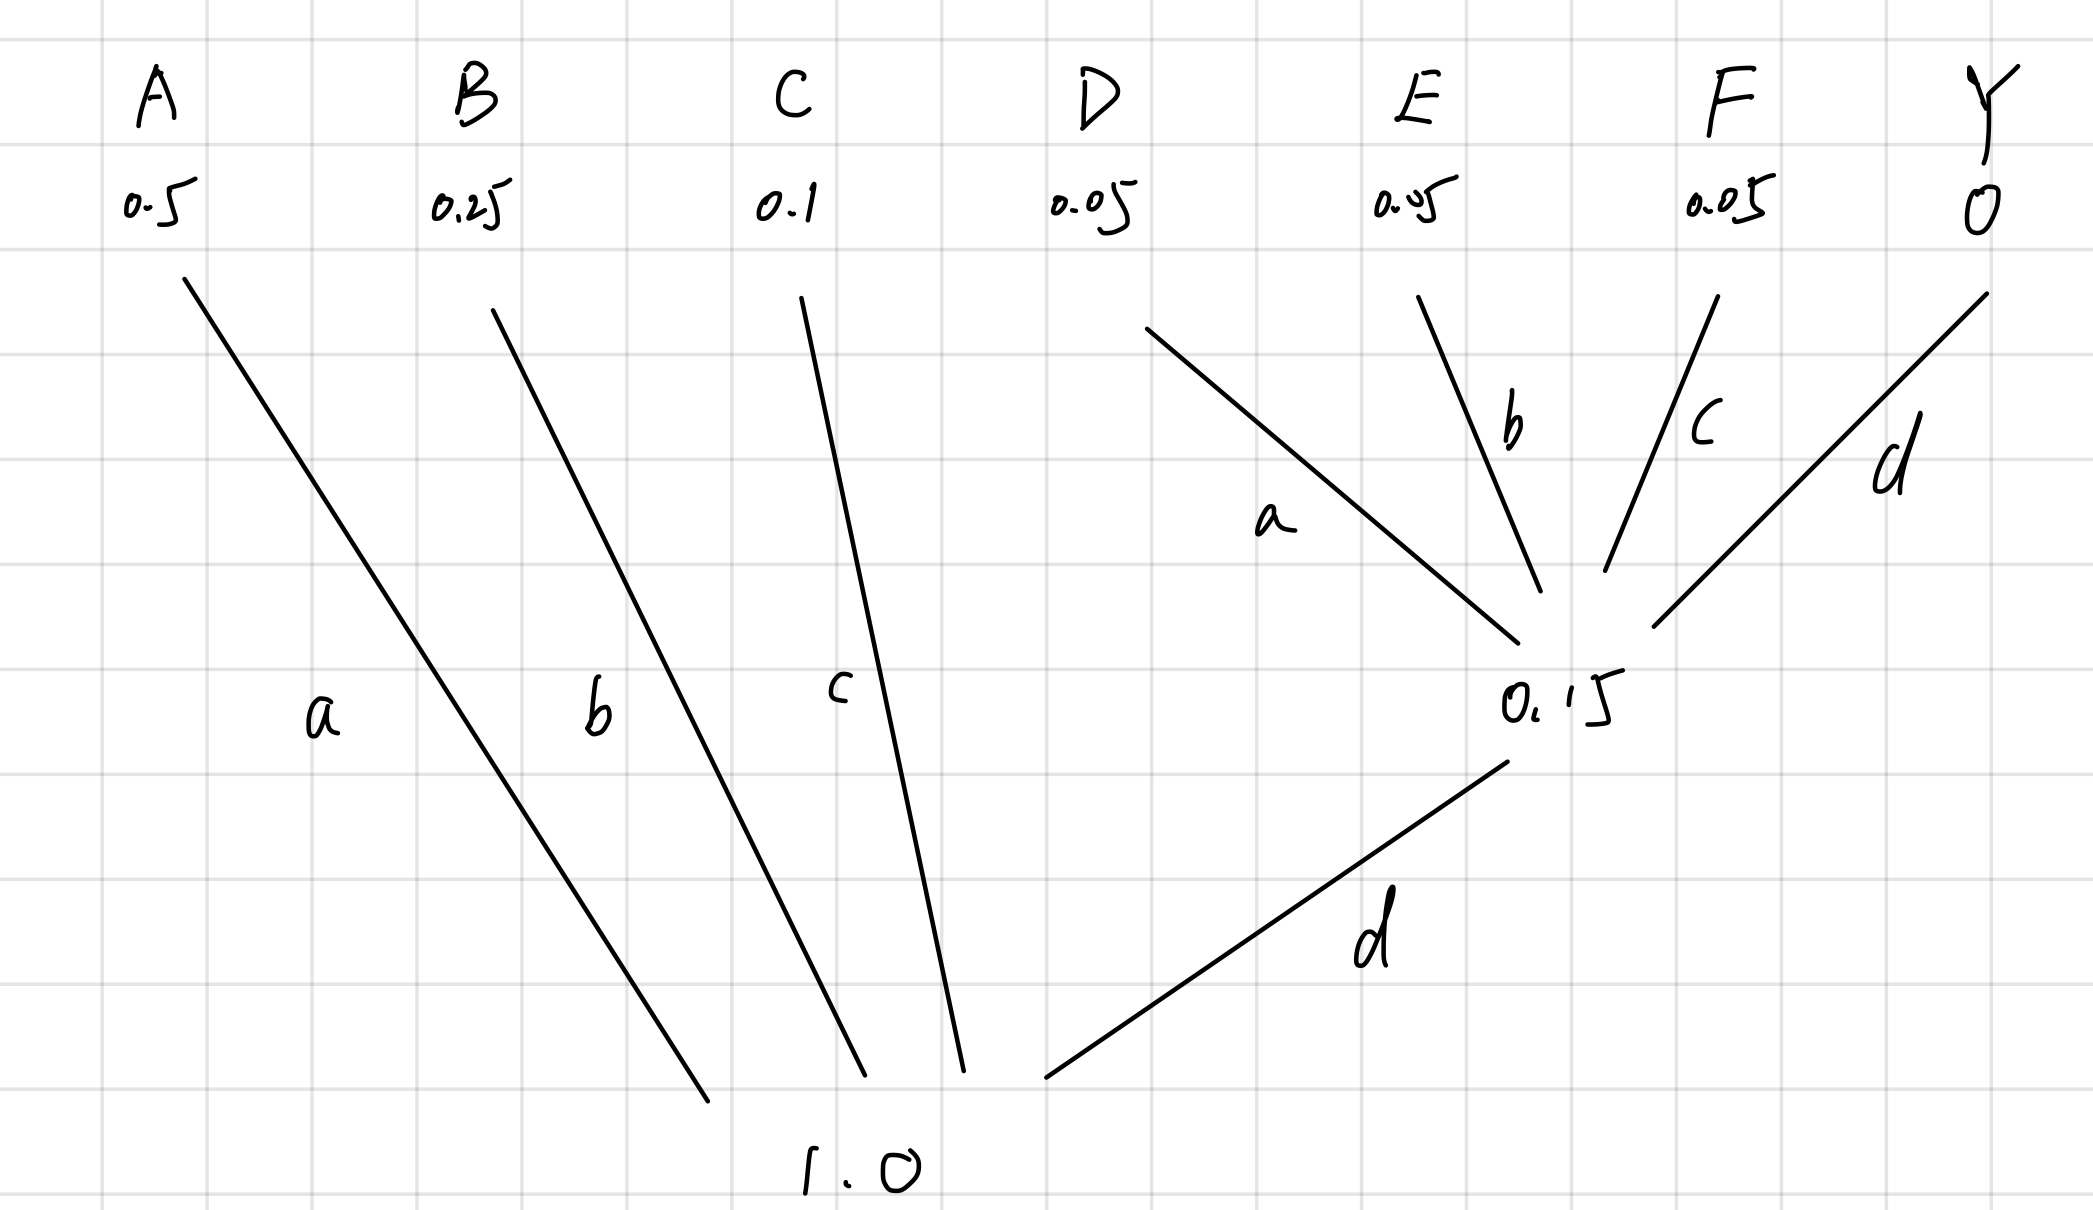 A B C D E F Y
0.5 0.25 0.1 0.05 0.05 0.05 0
b c
a d
a b c 0.15
d
1.0